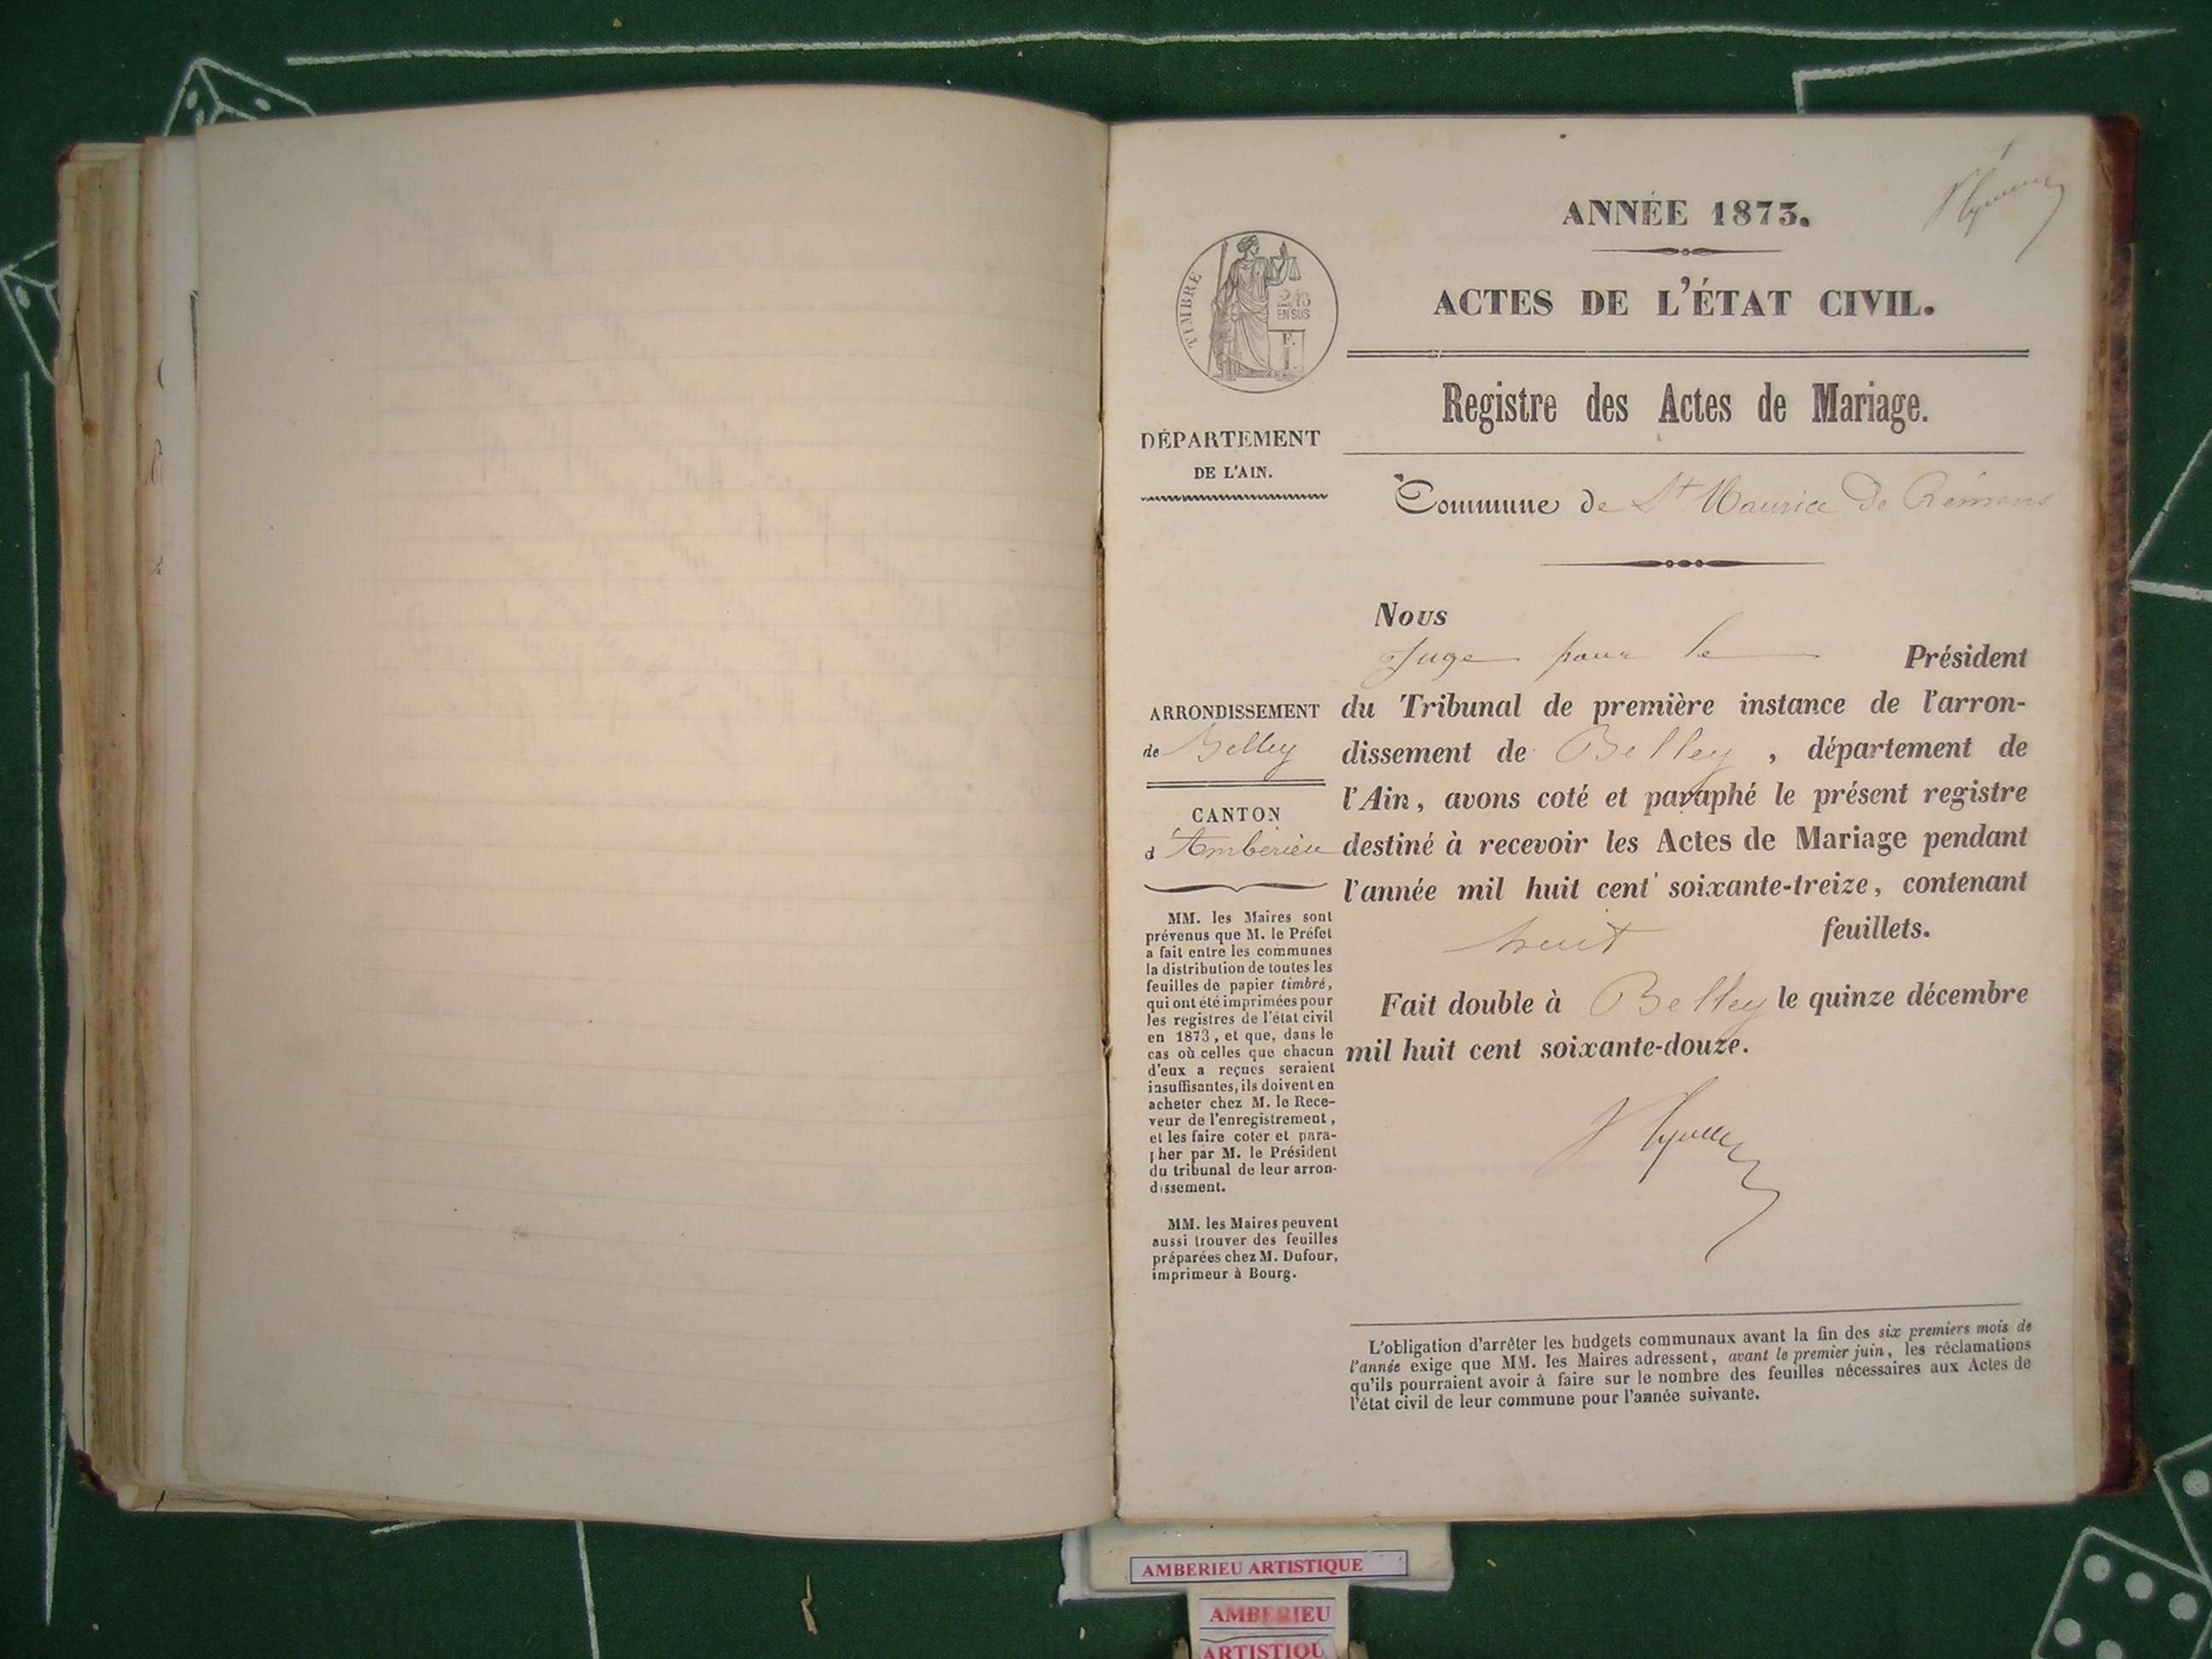 ANNÉE 1873.
ACTES DE L'ÉTAT CIVIL.
TIMBRE
2/10
EN SUS
Registre des Actes de Mariage.
DÉPARTEMENT
DE L'AIN.
Commune de St Maurice De Rémens
Nous
Juge pour le Président
du Tribunal de première instance de l'arron-
dissement de Belley, département de
l'Ain, avons coté et paraphé le présent registre
destiné à recevoir les Actes de Mariage pendant
l'année mil huit cent soixante-treize, contenant
huit feuillets.
Fait double à Belley le quinze décembre
mil huit cent soixante-douze.
ARRONDISSEMENT
de Belley
CANTON
d'Ambérieu
MM. les Maires sont
prévenus que M. le Préfet
a fait entre les communes
la distribution de toutes les
feuilles de papier timbré,
qui ont été imprimées pour
les registres de l'état civil
en 1873, et que, dans le
cas où celles que chacun
d'eux a reçues seraient
insuffisantes, ils doivent en
acheter chez M. le Rece-
veur de l'enregistrement,
et les faire coter et para-
pher par M. le Président
du tribunal de leur arron-
dissement.
MM. les Maires peuvent
aussi trouver des feuilles
préparées chez M. Dufour,
imprimeur à Bourg.
L'obligation d'arrêter les budgets communaux avant la fin des six premiers mois de
l'année exige que MM. les Maires adressent, avant le premier juin, les réclamations
qu'ils pourraient avoir à faire sur le nombre des feuilles nécessaires aux Actes de
l'état civil de leur commune pour l'année suivante.
AMBERIEU ARTISTIQUE
AMBERIEU
ARTISTIQU